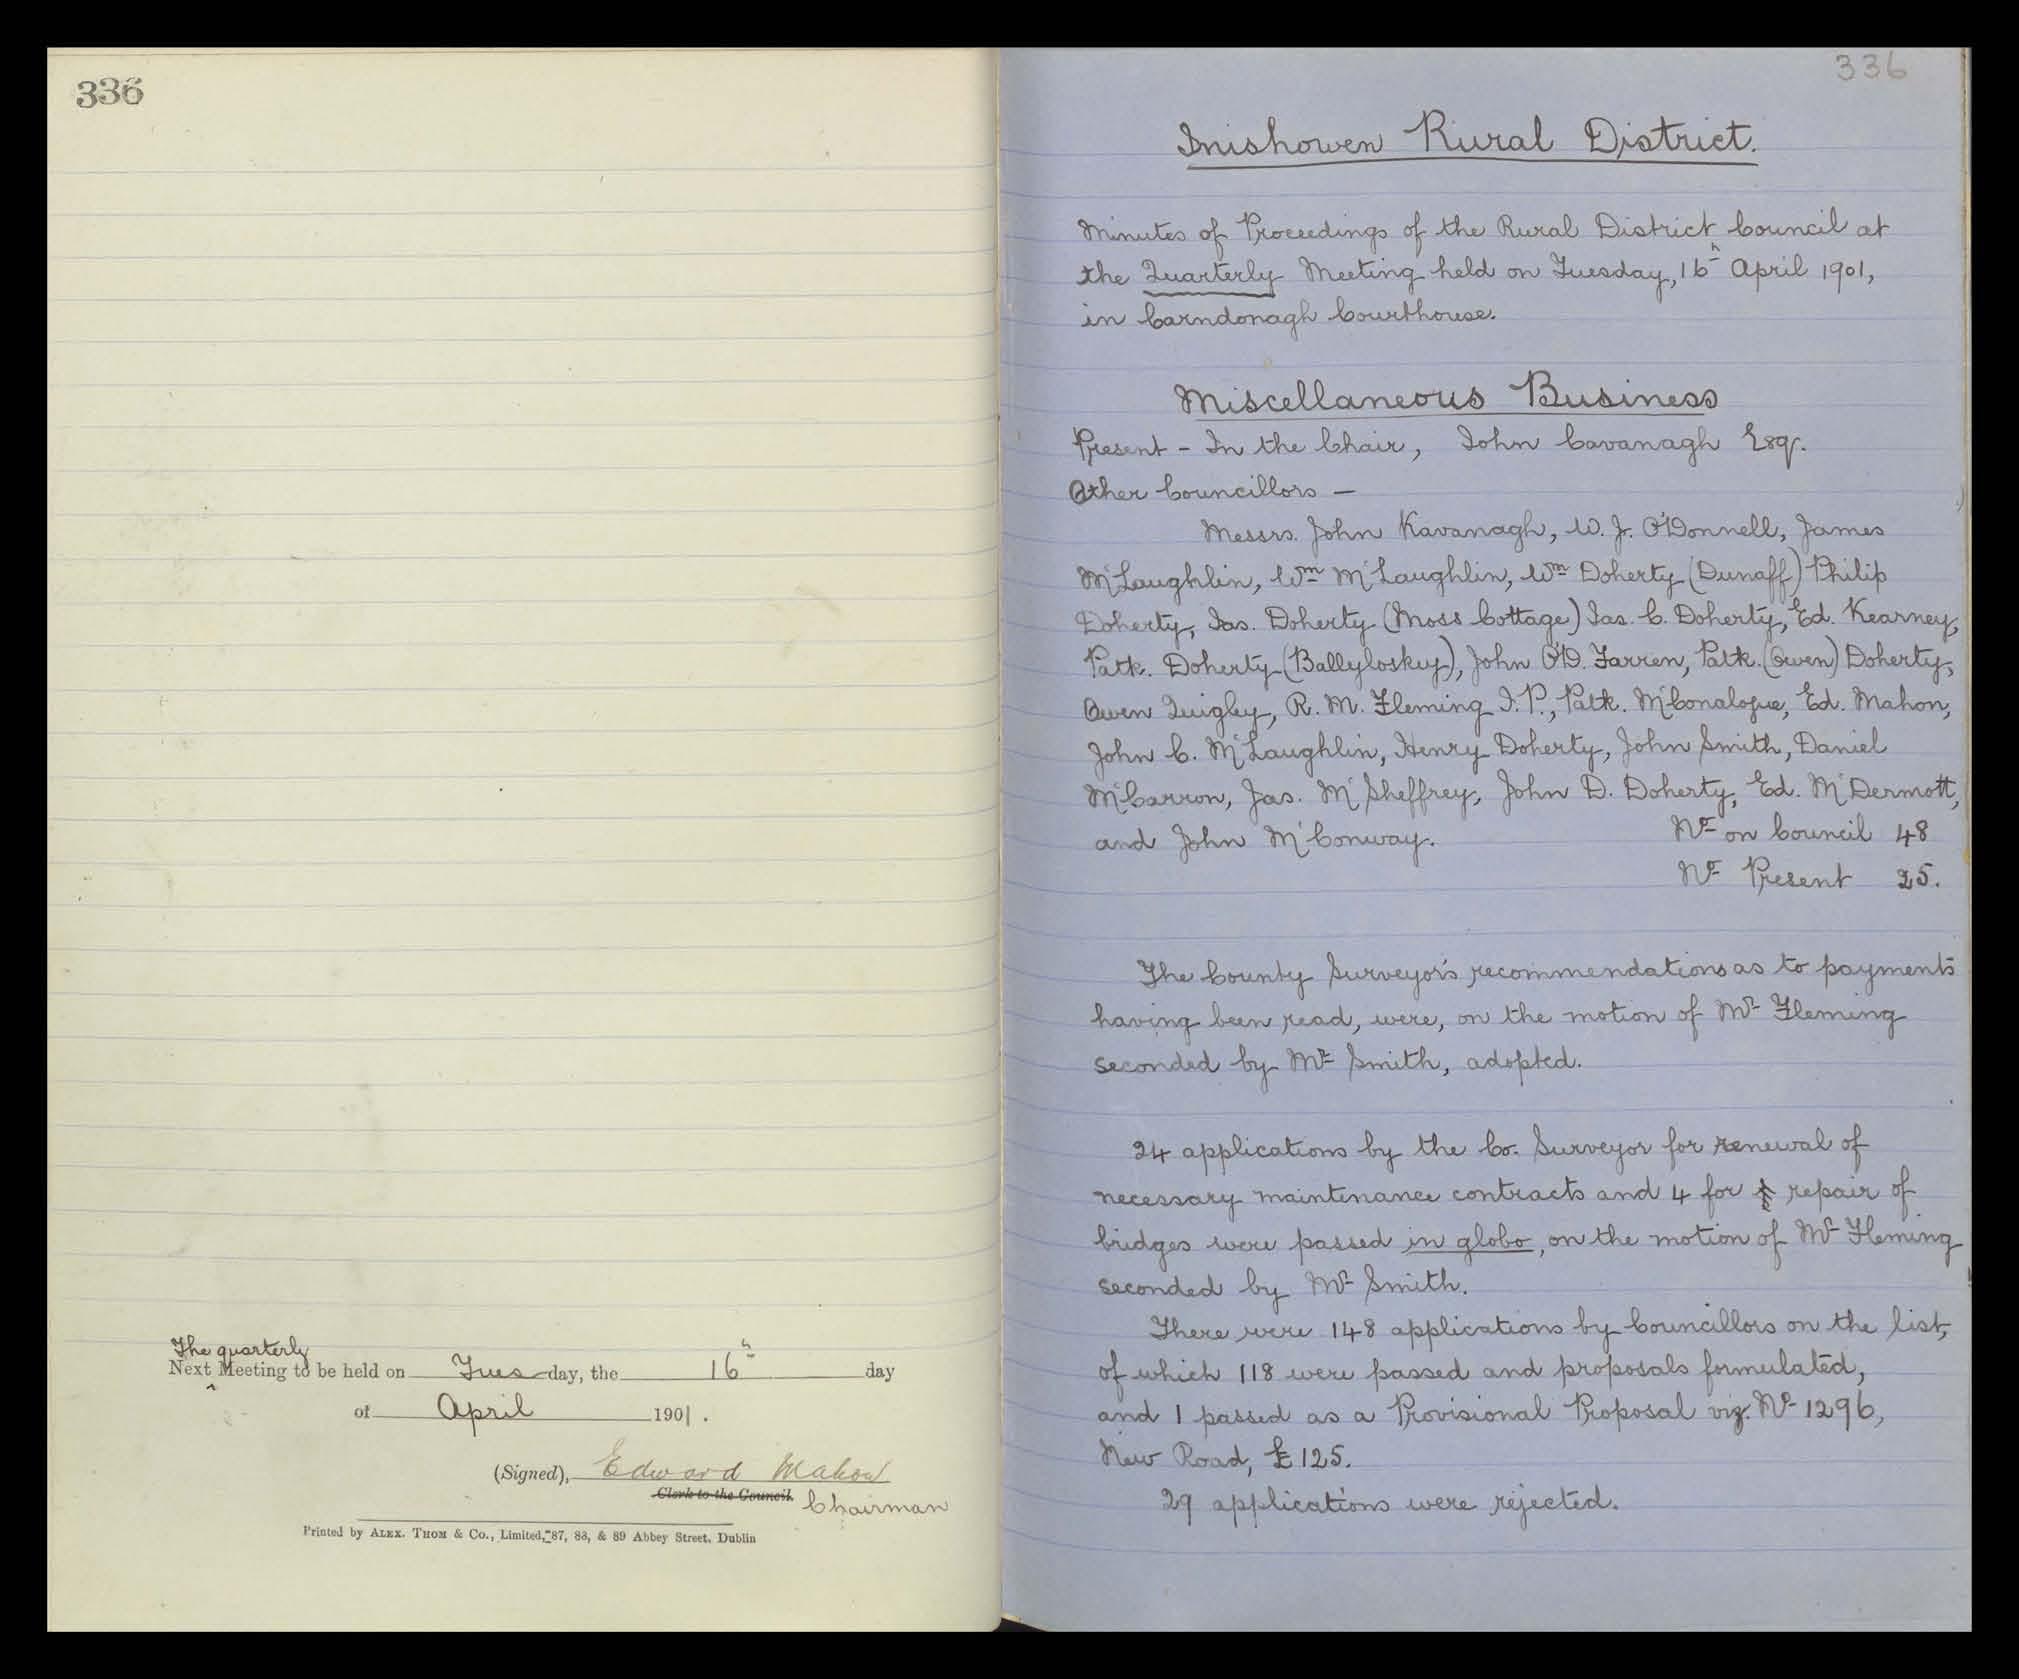 336
The quarterly
Next Meeting to be held on Tuesday, the 16th day
of April 1901.
(Signed), Edward Mahon
Clerk to the Council. Chairman
Printed by ALEX. THOM & Co., Limited, 87, 88, & 89 Abbey Street, Dublin
336
Inishowen Rural District.
Minutes of Proceedings of the Rural District Council at
the Quarterly Meeting held on Tuesday, 16th April 1901,
in Carndonagh Courthouse.
Miscellaneous Business
Present - In the Chair, John Cavanagh Esq.
Other Councillors —
Messrs. John Kavanagh, W. J. O'Donnell, James
McLaughlin, Wm McLaughlin, Wm Doherty (Dunaff) Philip
Doherty, Jas. Doherty (Moss Cottage) Jas. C. Doherty, Ed. Kearney,
Patk. Doherty (Ballyloskey), John O'D. Farren, Patk. (Owen) Doherty,
Owen Quigley, R. M. Fleming J.P., Patk. McConalogue, Ed. Mahon,
John C. McLaughlin, Henry Doherty, John Smith, Daniel
McCarron, Jas. McSheffrey, John D. Doherty, Ed. McDermott,
and John McConway. No on Council 48
No Present 25.
The County Surveyor's recommendations as to payments
having been read, were, on the motion of Mr Fleming
seconded by Mr Smith, adopted.
24 applications by the Co. Surveyor for renewal of
necessary maintenance contracts and 4 for repair of
bridges were passed in globo, on the motion of Mr Fleming
seconded by Mr Smith.
There were 148 applications by Councillors on the list,
of which 118 were passed and proposals formulated,
and 1 passed as a Provisional Proposal viz. No 1296,
New Road, £125.
29 applications were rejected.